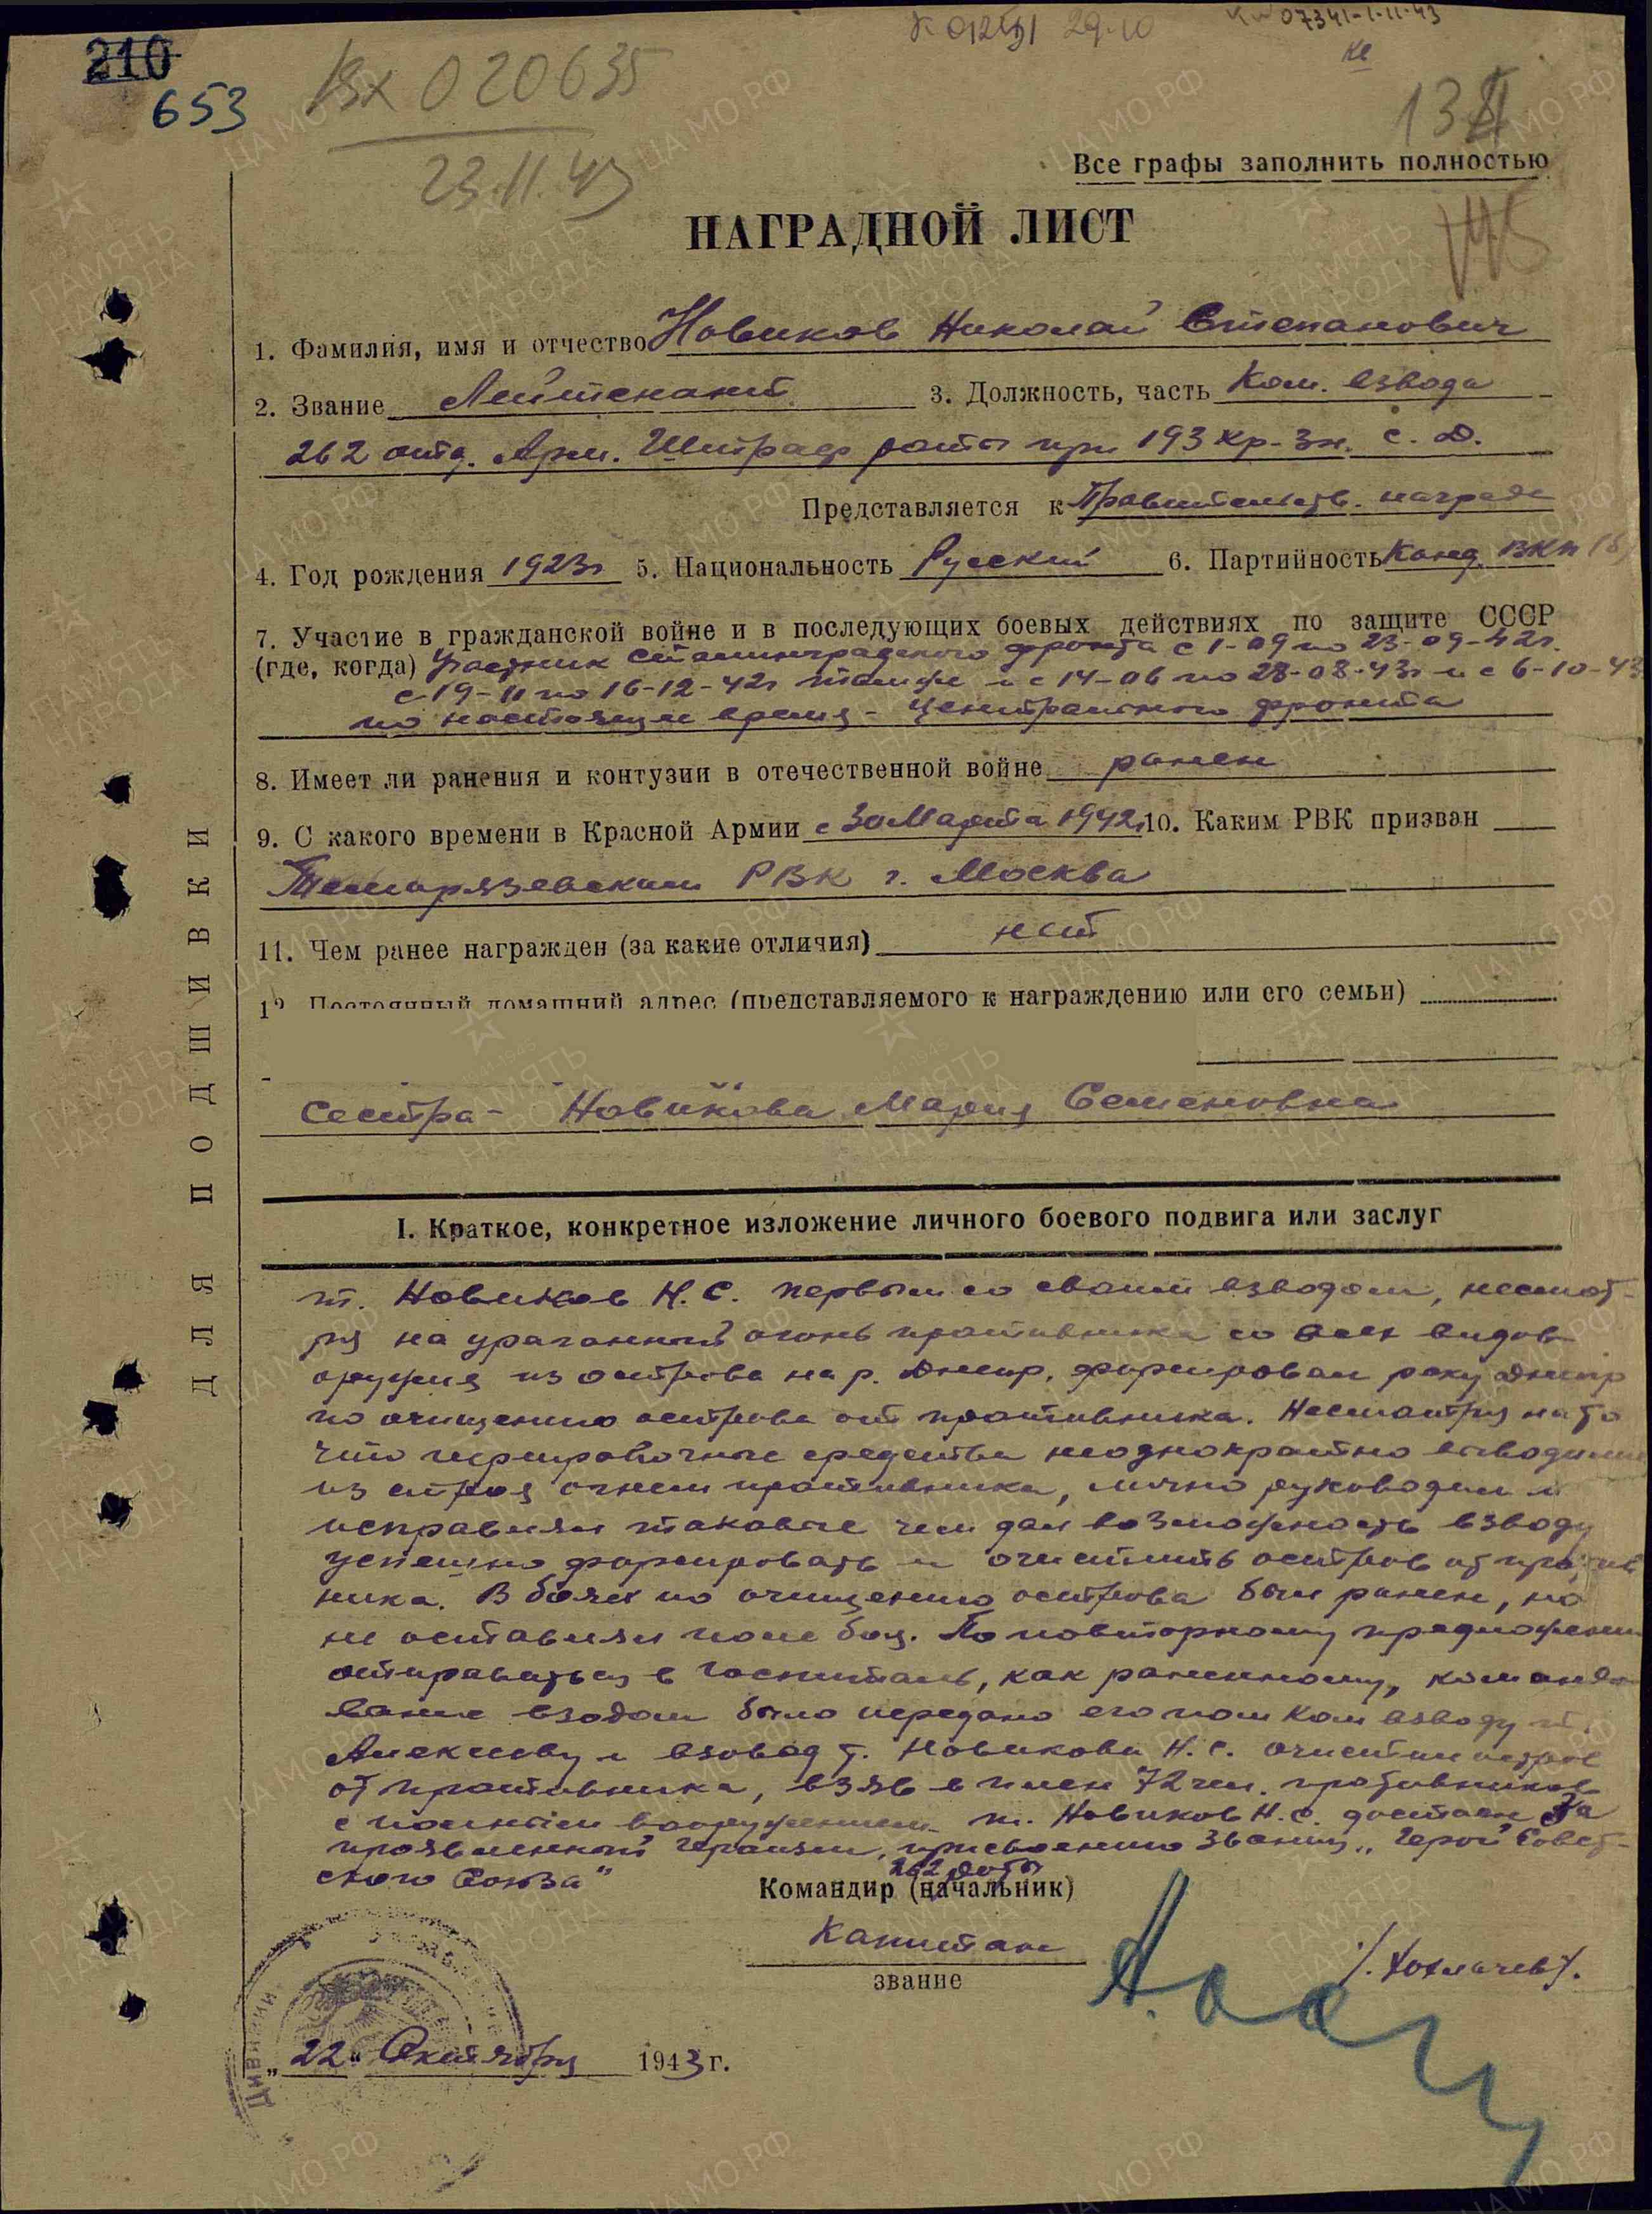 К 012591 29.10
07341-1-11-43
210
653
Вх 020635
23.11.43
Все графы заполнить полностью
НАГРАДНОЙ ЛИСТ
1. Фамилия, имя и отчество Новиков Николай Степанович
2. Звание Лейтенант 3. Должность, часть Ком. взвода
262 отд. Арм. Штраф роты при 193 кр-зн. с. д.
Представляется к Правительств. награде
4. Год рождения 1923г 5. Национальность Русский 6. Партийность Канд. ВКП(б)
7. Участие в гражданской войне и в последующих боевых действиях по защите СССР
(где, когда) Участник Сталинградского фронта с 1-09 по 23-09-42г.
с 19-11 по 16-12-42г также и с 14-06 по 28-08-43г и с 6-10-43
по настоящее время - Центрального фронта
8. Имеет ли ранения и контузии в отечественной войне ранен
9. С какого времени в Красной Армии с 30 Марта 1942г 10. Каким РВК призван
Тимирязевским РВК г. Москва
11. Чем ранее награжден (за какие отличия) нет
12. Постоянный домашний адрес (представляемого к награждению или его семьи)
сестра - Новикова Мария Семеновна
I. Краткое, конкретное изложение личного боевого подвига или заслуг
т. Новиков Н.С. первым со своим взводом, несмот-
ря на ураганный огонь противника со всех видов
оружия из острова на р. Днепр, форсировал реку Днепр
по очищению острова от противника. Несмотря на то
что переправочные средства неоднократно выводили
из строя огнем противника, лично руководил и
исправлял таковые чем дал возможность взводу
успешно форсировать и очистить остров от против
ника. В боях по очищению острова был ранен, но
не оставлял поле боя. По повторному предложени
отправиться в госпиталь, как раненному, командо
вание взодом было передано его пом Ком взводу т.
Алексееву и взовод т. Новикова Н.С. очистил остров
от противника, взяв в плен 72 чел. противников
с полным вооружением. т. Новиков Н.С. достоен за
проявленный героизм, присвоению звания „Герой Совет-
ского Союза"
262 роты
Командир (начальник)
Капитан
звание
/. Хохлачев/.
„22" Октября 1943 г.
ДЛЯ ПОДШИВКИ
ПАМЯТЬ НАРОДА
ЦА МО РФ